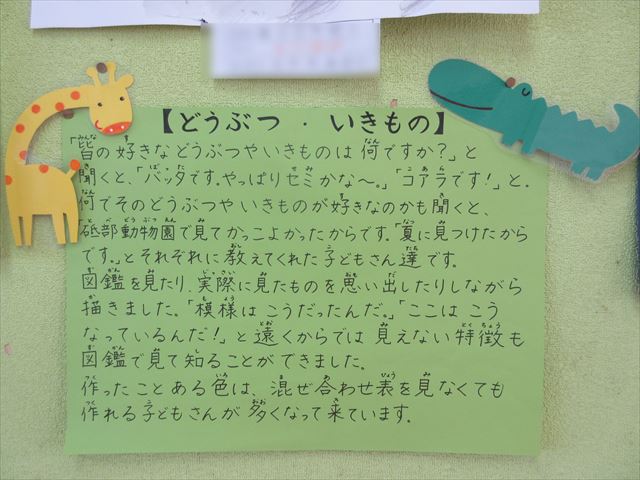 【どうぶつ・いきもの】
「皆の好きなどうぶつやいきものは何ですか?」と
聞くと、「バッタです。やっぱりセミかな〜。」「コアラです!」と。
何でそのどうぶつやいきものが好きなのかも聞くと、
「砥部動物園で見てかっこよかったからです。「夏に見つけたから
です。」とそれぞれに教えてくれた子どもさん達です。
図鑑を見たり、実際に見たものを思い出したりしながら
描きました。「模様はこうだったんだ。」「ここはこう
なっているんだ!」と遠くからでは見えない特徴も
図鑑で見て知ることができました。
作ったことある色は、混ぜ合わせ表を見なくても
作れる子どもさんが多くなって来ています。